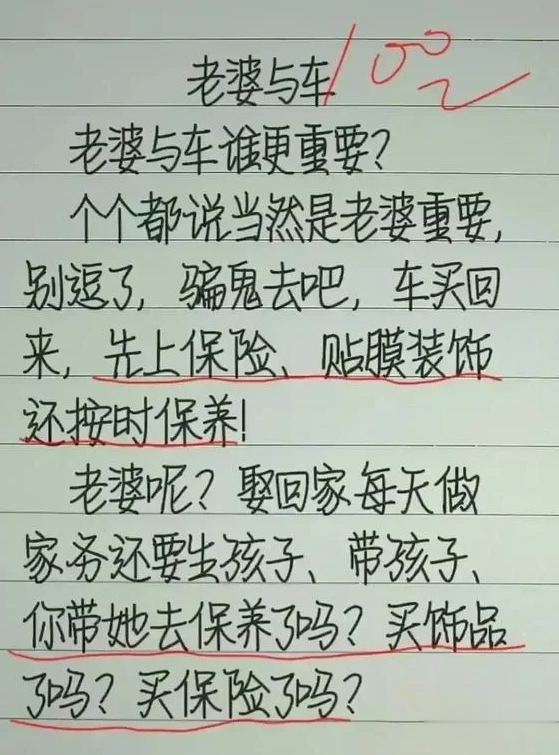 老婆与车 100
老婆与车谁更重要?
个个都说当然是老婆重要,
别逗了, 骗鬼去吧, 车买回
来, 先上保险、贴膜装饰
还按时保养!
老婆呢? 娶回家每天做
家务还要生孩子、带孩子、
你带她去保养了吗? 买饰品
了吗? 买保险了吗?